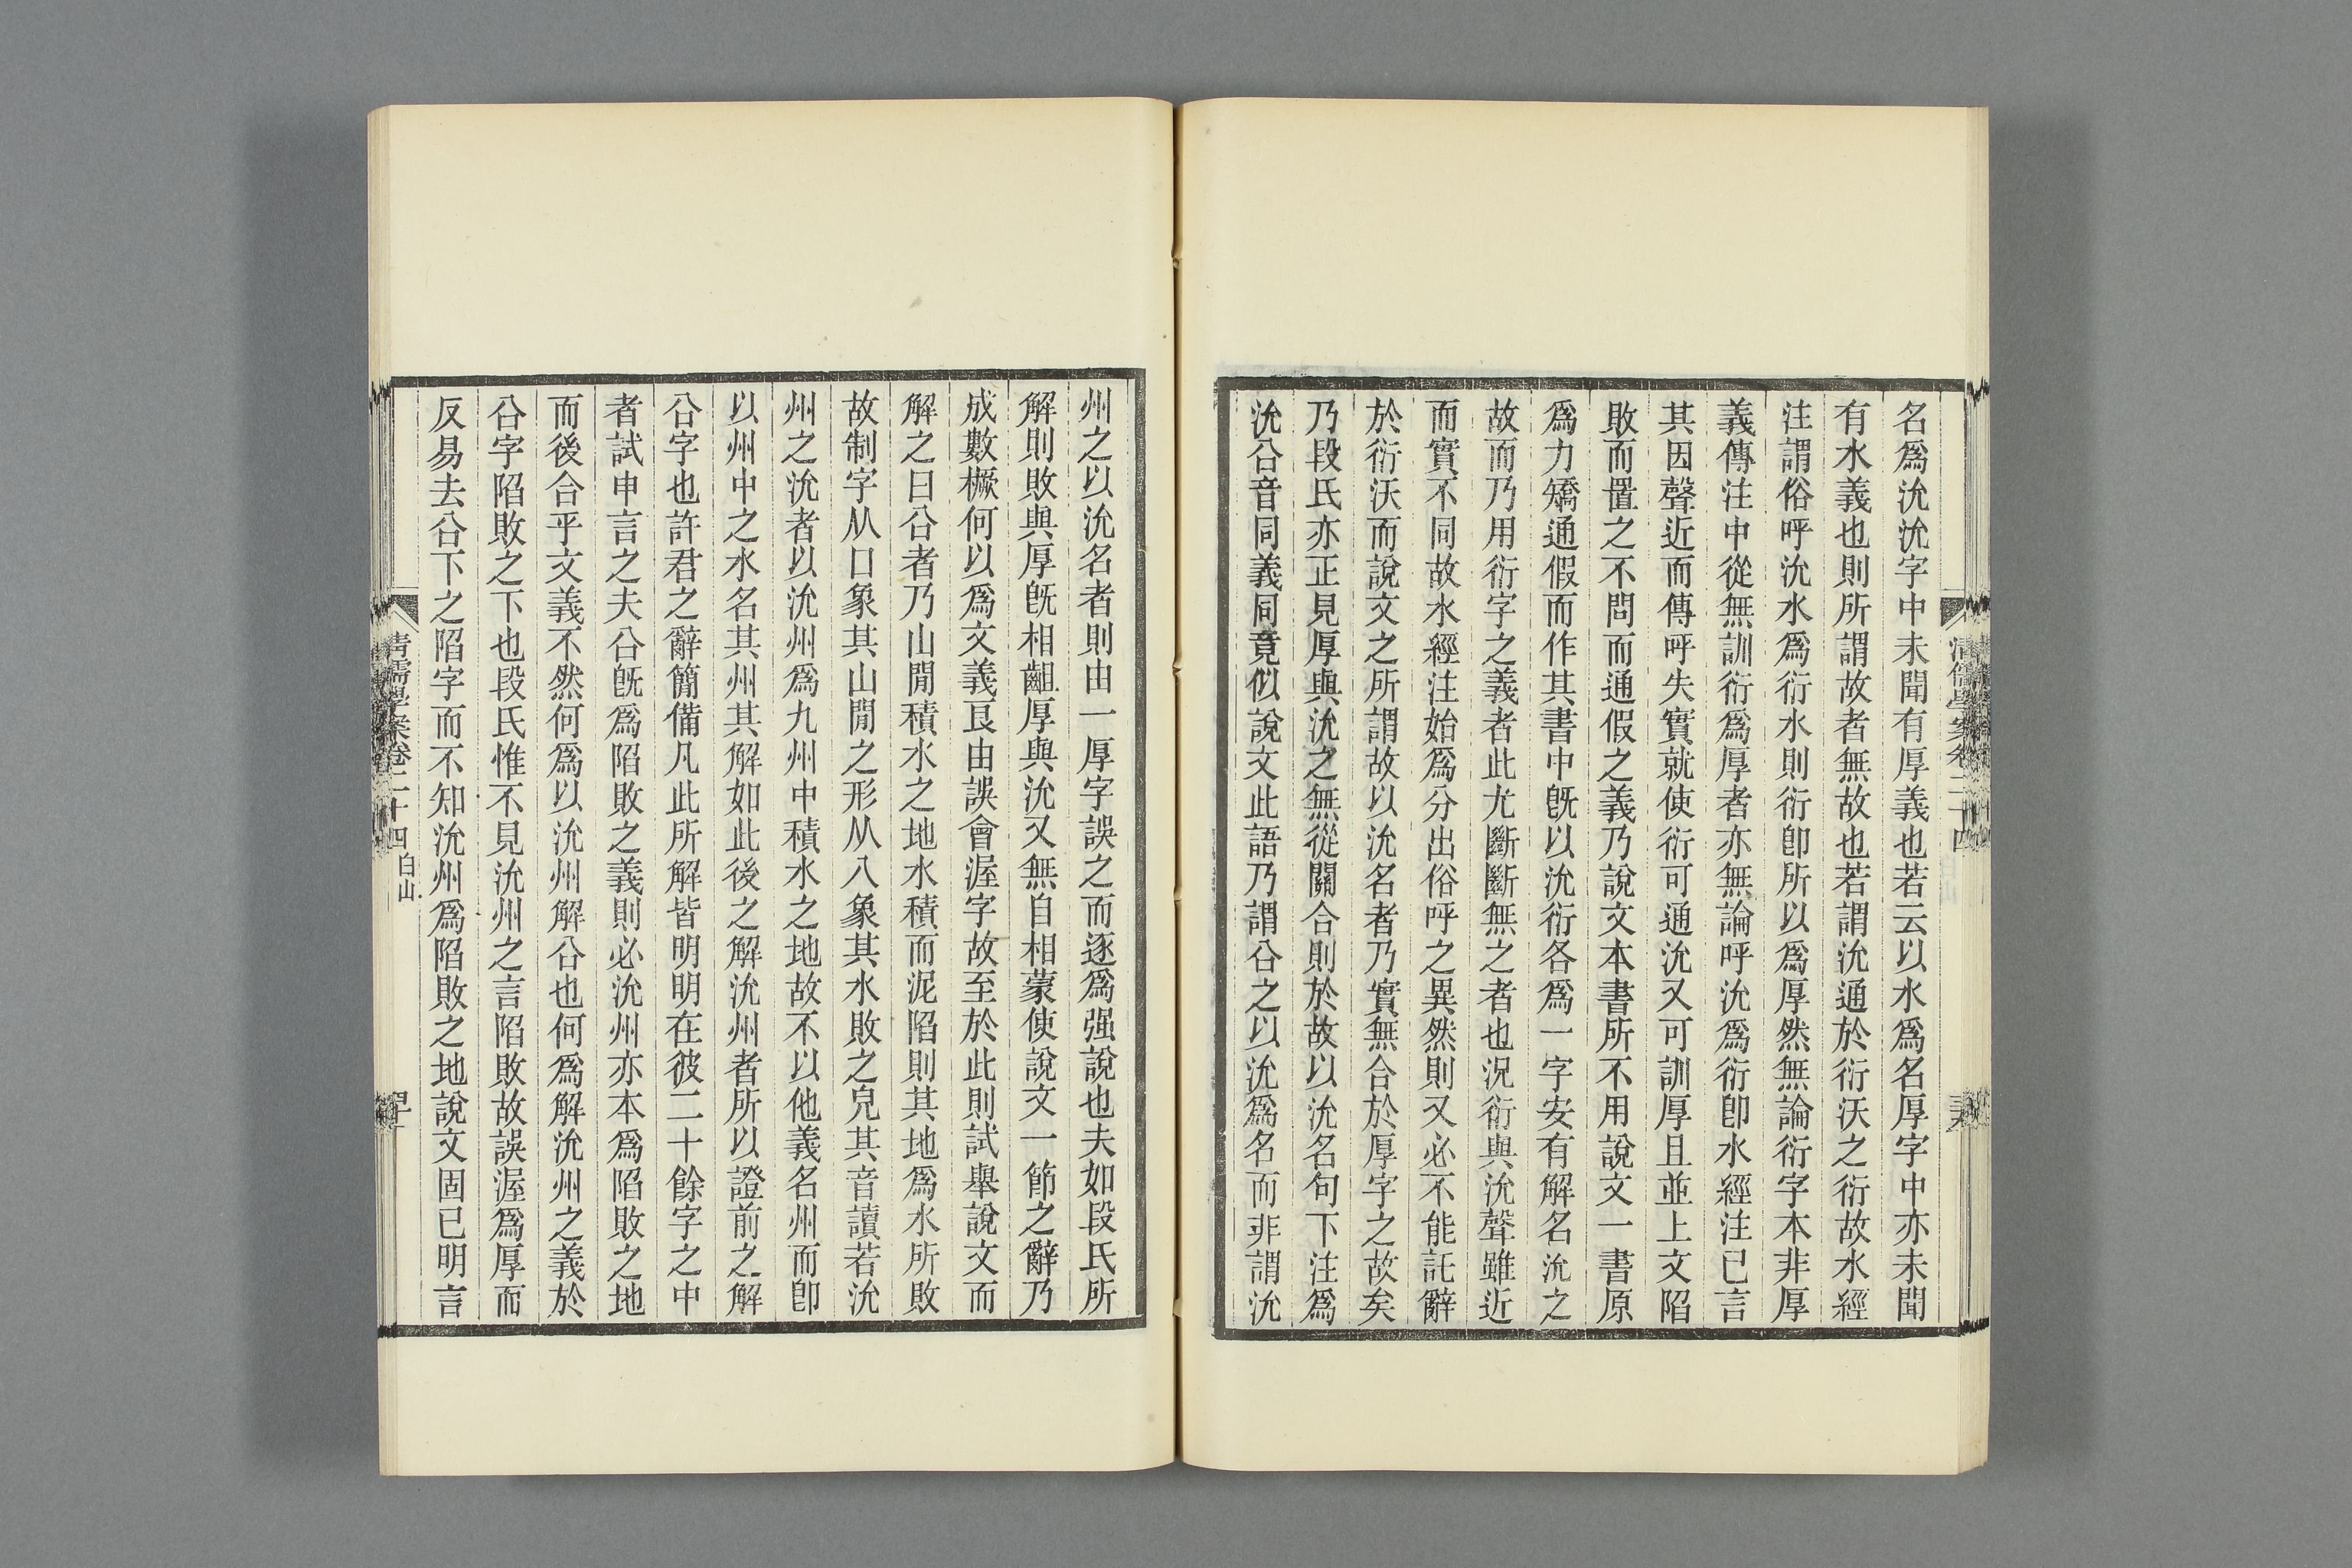 名爲沇沇字中未聞有厚義也若云以水爲名厚字中亦未聞
有水義也則所謂故者無故也若謂沇通於衍沃之衍故水經
注謂俗呼沇水爲衍水則衍卽所以爲厚然無論衍字本非厚
義傳注中從無訓衍爲厚者亦無論呼沇爲衍卽水經注已言
其因聲近而傳呼失實就使衍可通沇又可訓厚且並上文陷
敗而置之不問而通假之義乃說文本書所不用說文一書原
爲力矯通假而作其書中旣以沇衍各爲一字安有解名沇之
故而乃用衍字之義者此尤斷斷無之者也況衍與沇聲雖近
而實不同故水經注始爲分出俗呼之異然則又必不能託辭
於衍沃而說文之所謂故以沇名者乃實無合於厚字之故矣
乃段氏亦正見厚與沇之無從關合則於故以沇名句下注爲
沇㕣音同義同竟似說文此語乃謂㕣之以沇爲名而非謂沇
州之以沇名者則由一厚字誤之而逐爲强說也夫如段氏所
解則敗與厚旣相齟厚與沇又無自相蒙使說文一節之辭乃
成數橛何以爲文義艮由誤會渥字故至於此則試舉說文而
解之曰㕣者乃山閒積水之地水積而泥陷則其地爲水所敗
故制字从口象其山閒之形从八象其水敗之皃其音讀若沇
州之沇者以沇州爲九州中積水之地故不以他義名州而卽
以州中之水名其州其解如此後之解沇州者所以證前之解
㕣字也許君之辭簡備凡此所解皆明明在彼二十餘字之中
者試申言之夫㕣旣爲陷敗之義則必沇州亦本爲陷敗之地
而後合乎文義不然何爲以沇州解㕣也何爲解沇州之義於
㕣字陷敗之下也段氏惟不見沇州之言陷敗故誤渥爲厚而
反易去㕣下之陷字而不知沇州爲陷敗之地說文固已明言
清儒學案卷二十四 白山